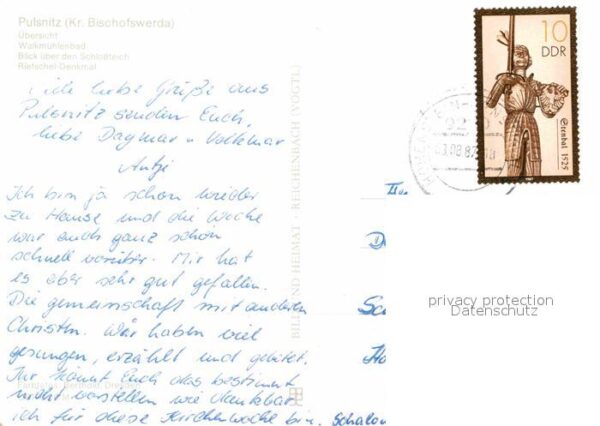 Pulsnitz (Kr. Bischofswerda)
Übersicht
Walkmühlenbad
Blick über den Schloßteich
Rietschel-Denkmal
Viele liebe Grüße aus
Pulsnitz senden Euch,
liebe Dagmar u. Volkmar
Antje
Ich bin ja schon wieder
zu Hause und die Woche
war auch ganz schön
schnell vorüber. Mir hat
es aber sehr gut gefallen.
Die gemeinschaft mit anderen
Christen. Wir haben viel
gesungen, erzählt und gebetet.
Ihr könnt Euch das bestimmt
nicht vorstellen wie dankbar
ich für diese Kirchenwoche bin. Schalom
BILD UND HEIMAT · REICHENBACH (VOGTL)
10
DDR
Stendal 1525
92
privacy protection
Datenschutz